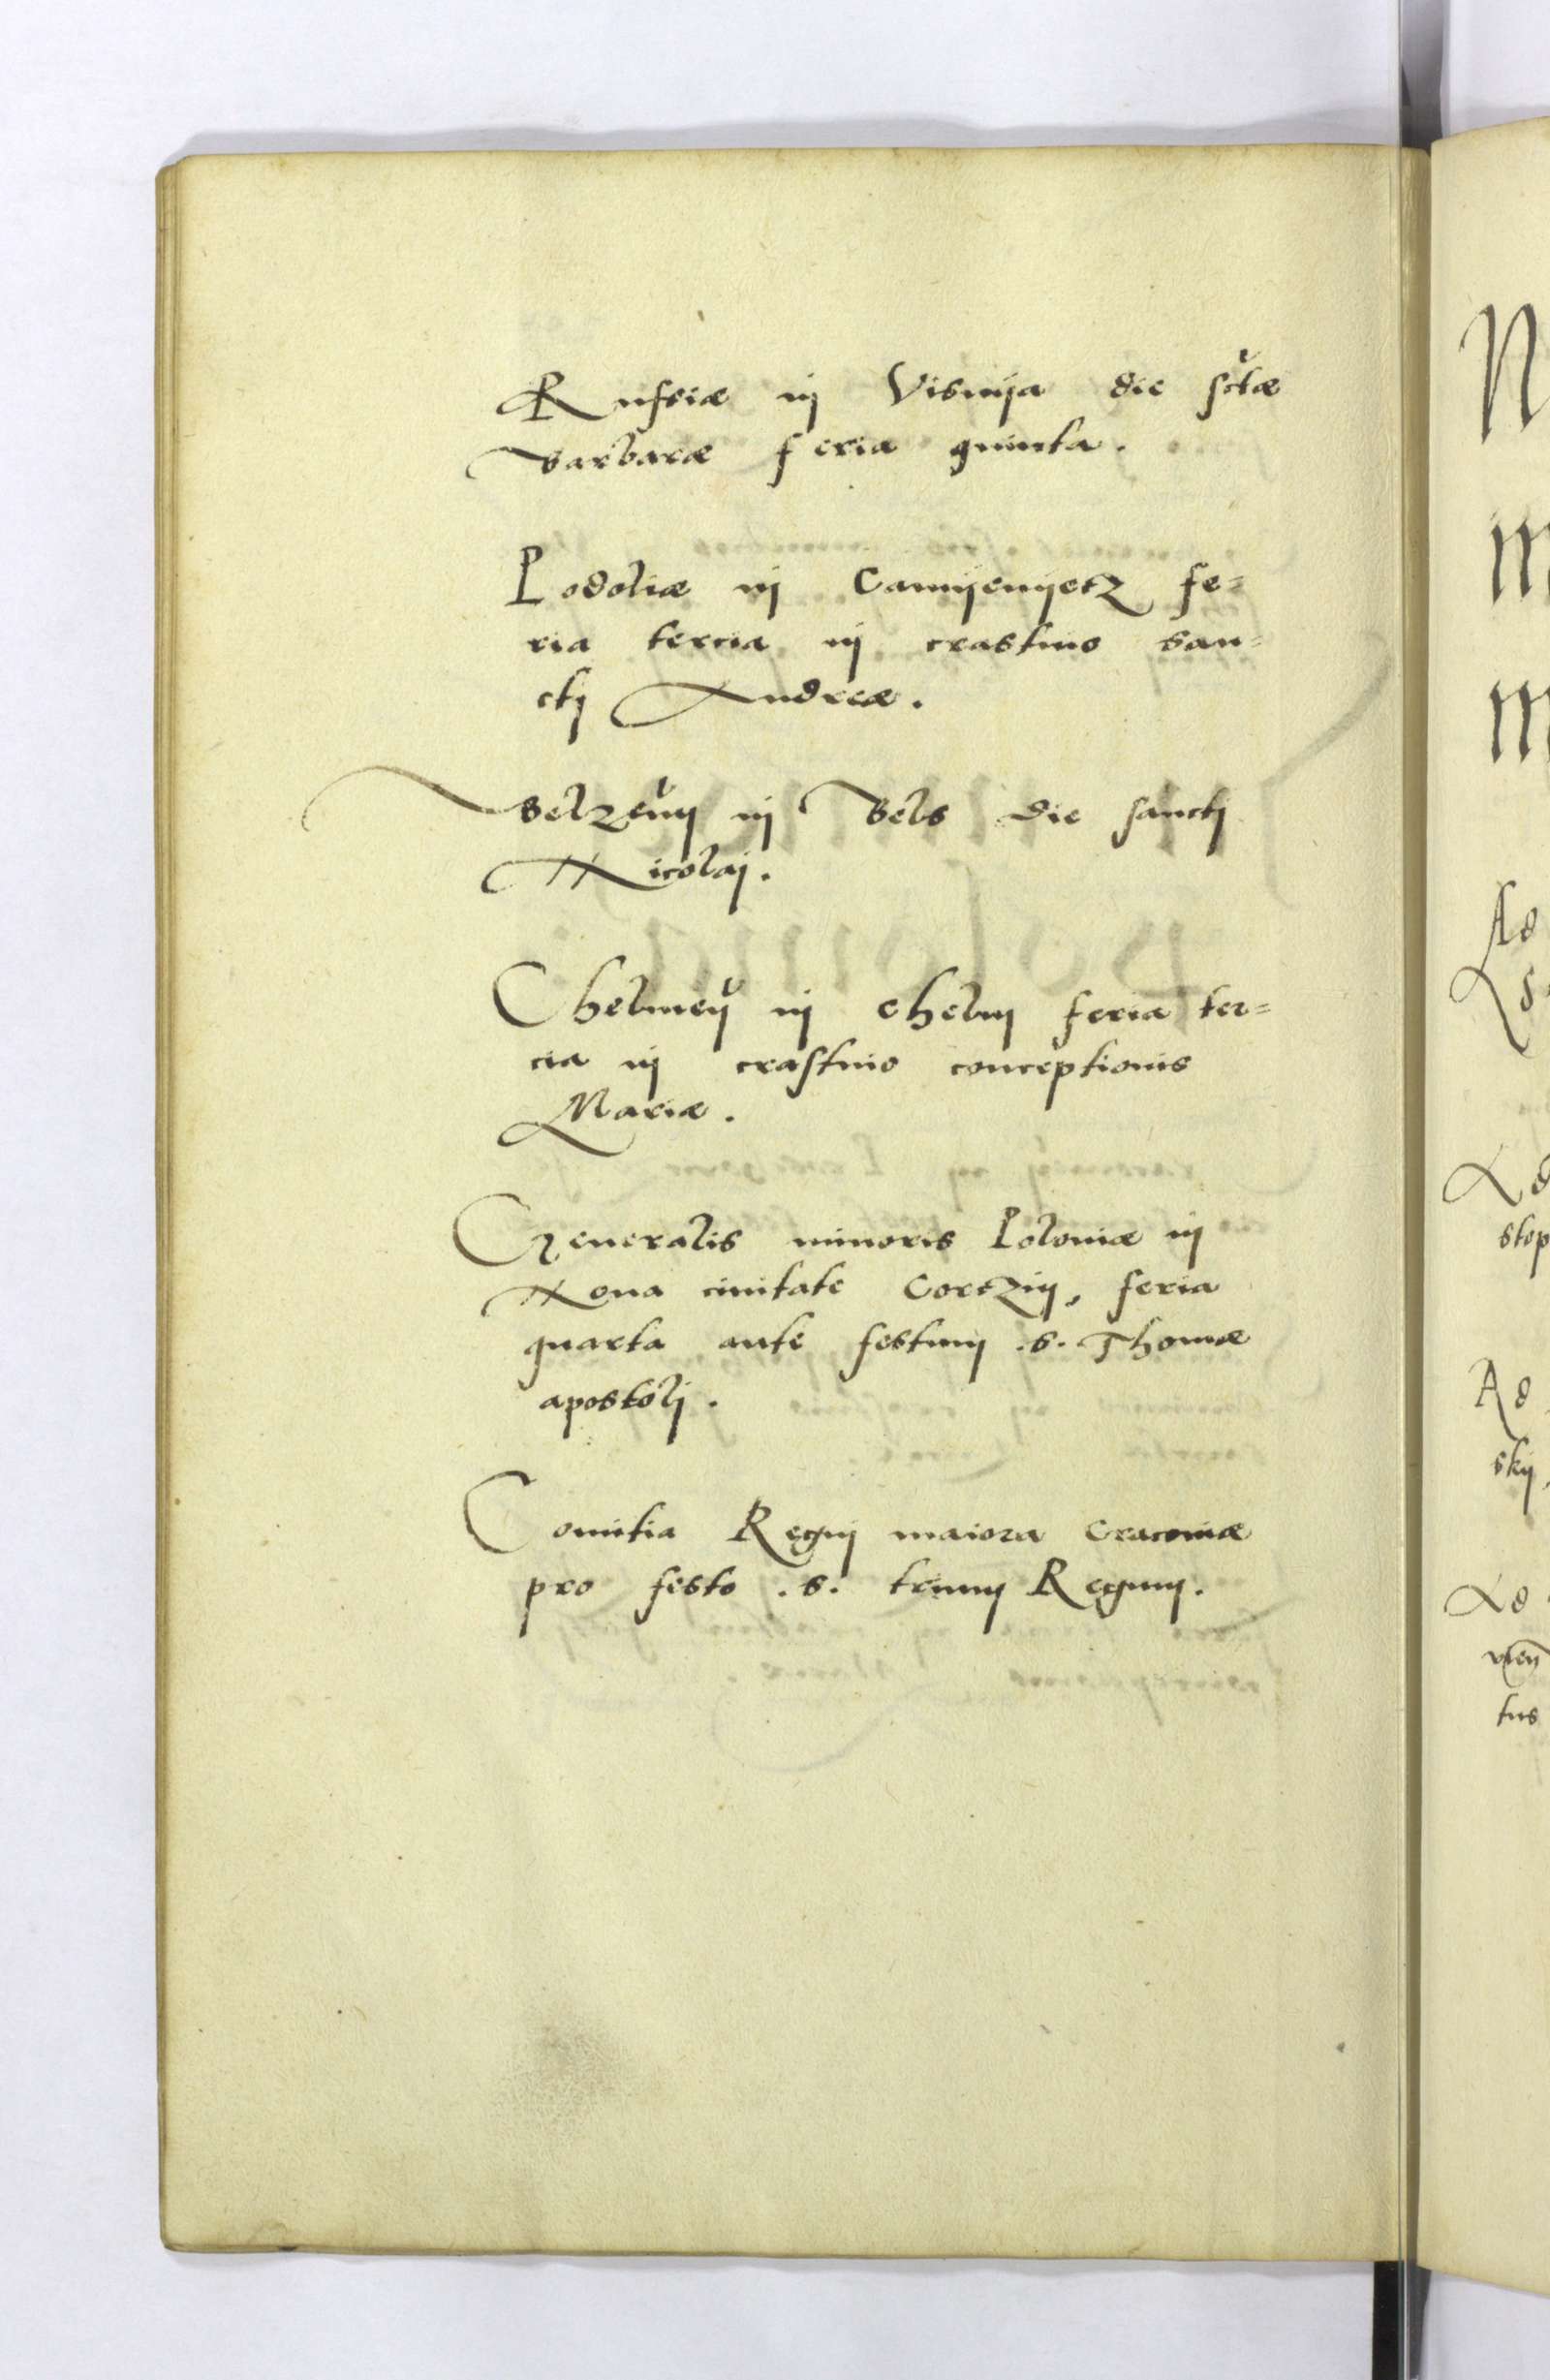 Russiæ in Visnija die sctæ
Barbaræ feria quinta.
Podoliæ in Camijenijetz fe=
ria tercia in crastino san=
cti Andreæ.
Belzen̄ in Bels die sancti
Nicolai.
Chelmeñ in Chelm feria ter=
cia in crastino conceptionis
Mariæ.
Generalis minoris Poloniæ in
Nova civitate Corczin, feria
quarta ante festum .s. Thomæ
apostoli.
Comitia Regni maiora Cracoviæ
pro festo .s. trium Regum.